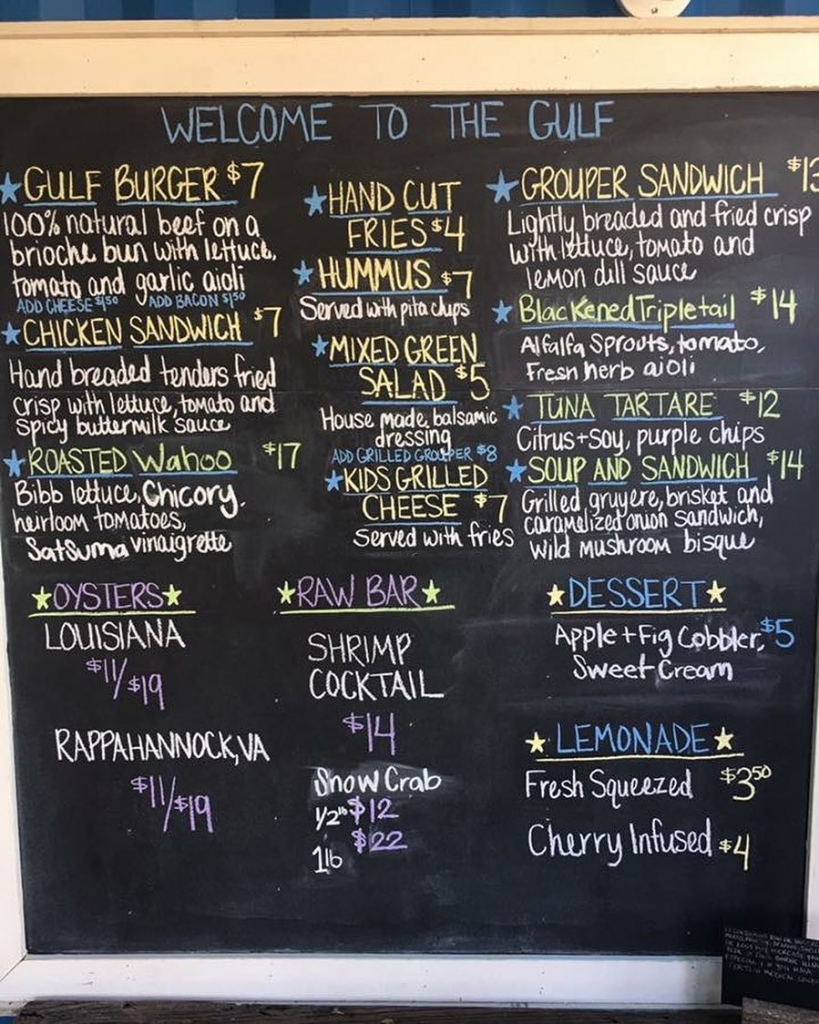 WELCOME TO THE GULF
GULF BURGER $7
100% natural beef on a
brioche bun with lettuce,
tomato and garlic aioli
ADD CHEESE $1.50 ADD BACON $1.50
CHICKEN SANDWICH $7
Hand breaded tenders fried
crisp with lettuce, tomato and
spicy buttermilk sauce
ROASTED Wahoo $17
Bibb lettuce, Chicory,
heirloom tomatoes,
Satsuma vinaigrette
HAND CUT
FRIES $4
HUMMUS $7
Served with pita chips
MIXED GREEN
SALAD $5
House made balsamic
dressing
ADD GRILLED GROUPER $8
KIDS GRILLED
CHEESE $7
Served with fries
GROUPER SANDWICH $13
Lightly breaded and fried crisp
with lettuce, tomato and
lemon dill sauce
Blackened Tripletail $14
Alfalfa Sprouts, tomato,
Fresh herb aioli
TUNA TARTARE $12
Citrus + Soy, purple chips
SOUP AND SANDWICH $14
Grilled gruyere, brisket and
caramelized onion sandwich,
wild mushroom bisque
OYSTERS
LOUISIANA
$11/$19
RAPPAHANNOCK, VA
$11/$19
RAW BAR
SHRIMP
COCKTAIL
$14
Snow Crab
1/2 lb $12
1lb $22
DESSERT
Apple + Fig Cobbler, $5
Sweet Cream
LEMONADE
Fresh Squeezed $3.50
Cherry Infused $4